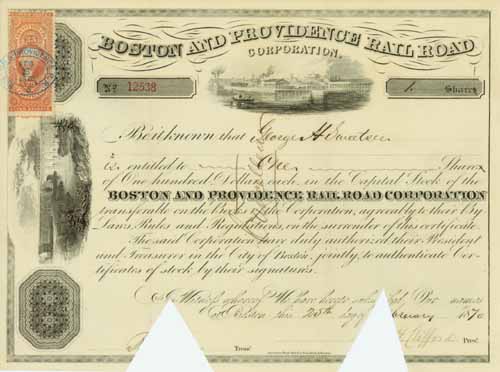 BOSTON AND PROVIDENCE RAIL ROAD
CORPORATION.
No 12538
1 Shares
Be it known that George H.
is entitled to One Shares
of One hundred Dollars each, in the Capital Stock of the
BOSTON AND PROVIDENCE RAIL ROAD CORPORATION
transferable on the Books of the Corporation, agreeably to their By
Laws, Rules and Regulations, on the surrender of this certificate.
The said Corporation have duly authorized their President
and Treasurer in the City of Boston, jointly, to authenticate Cer-
tificates of stock by their signatures.
In Witness whereof We have hereto subscribed Our names
at Boston this 25th day of February 1870
Clifford Pres.
Treas.